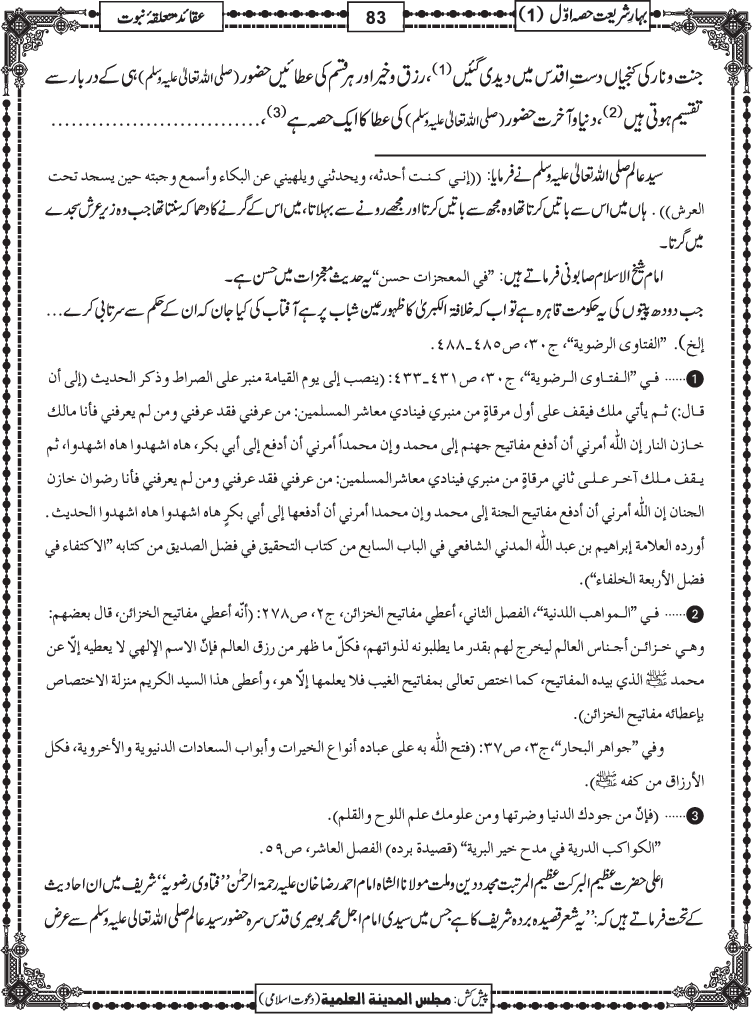 بہارِ شریعت حصہ اوّل (1)
83
عقائد متعلقۂ نبوت
جنت و نار کی کنجیاں دستِ اقدس میں دیدی گئیں (1)، رزق و خیر اور ہر قسم کی عطائیں حضور (صلی اللہ تعالیٰ علیہ وسلم) ہی کے دربار سے
تقسیم ہوتی ہیں (2)، دنیا و آخرت حضور (صلی اللہ تعالیٰ علیہ وسلم) کی عطا کا ایک حصہ ہے (3)، ..............................
سید عالم صلی اللہ تعالیٰ علیہ وسلم نے فرمایا: ((إني كنت أحدثه، ويحدثني ويلهيني عن البكاء وأسمع وجبته حين يسجد تحت
العرش)) . ہاں میں اس سے باتیں کرتا تھا وہ مجھ سے باتیں کرتا اور مجھے رونے سے بہلاتا، میں اس کے گرنے کا دھماکہ سنتا تھا جب وہ زیرِ عرش سجدے
میں گرتا۔
امام شیخ الاسلام صابونی فرماتے ہیں: ”في المعجزات حسن“ یہ حدیث معجزات میں حسن ہے۔
جب دودھ پیتوں کی یہ حکومت قاہرہ ہے تو اب کہ خلافۃ الکبریٰ کا ظہور عین شباب پر ہے آفتاب کی کیا جان کہ ان کے حکم سے سرتابی کرے...
إلخ). ”الفتاوى الرضوية“، ج۳۰، ص٤٨٥ـ٤٨٨.
1...... في ”الفتاوى الرضوية“، ج۳۰، ص٤٣١ـ٤٣٣: (ينصب إلى يوم القيامة منبر على الصراط وذكر الحديث (إلى أن
قال:) ثم يأتي ملك فيقف على أول مرقاةٍ من منبري فينادي معاشر المسلمين: من عرفني فقد عرفني ومن لم يعرفني فأنا مالك
خازن النار إن الله أمرني أن أدفع مفاتيح جهنم إلى محمد وإن محمداً أمرني أن أدفع إلى أبي بكر، هاه اشهدوا هاه اشهدوا، ثم
يقف ملك آخر على ثاني مرقاةٍ من منبري فينادي معاشرالمسلمين: من عرفني فقد عرفني ومن لم يعرفني فأنا رضوان خازن
الجنان إن الله أمرني أن أدفع مفاتيح الجنة إلى محمد وإن محمدا أمرني أن أدفعها إلى أبي بكرٍ هاه اشهدوا هاه اشهدوا الحديث.
أورده العلامة إبراهيم بن عبد الله المدني الشافعي في الباب السابع من كتاب التحقيق في فضل الصديق من كتابه ”الاكتفاء في
فضل الأربعة الخلفاء“).
2...... في ”المواهب اللدنية“، الفصل الثاني، أعطي مفاتيح الخزائن، ج٢، ص٢٧٨: (أنّه أعطي مفاتيح الخزائن، قال بعضهم:
وهي خزائن أجناس العالم ليخرج لهم بقدر ما يطلبونه لذواتهم، فكلّ ما ظهر من رزق العالم فإنّ الاسم الإلهي لا يعطيه إلّا عن
محمد ﷺ الذي بيده المفاتيح، كما اختص تعالى بمفاتيح الغيب فلا يعلمها إلّا هو، وأعطى هذا السيد الكريم منزلة الاختصاص
بإعطائه مفاتيح الخزائن).
وفي ”جواهر البحار“،ج۳، ص۳۷: (فتح الله به على عباده أنواع الخيرات وأبواب السعادات الدنيوية والأخروية، فكل
الأرزاق من كفه ﷺ).
3...... (فإنّ من جودك الدنيا وضرتها ومن علومك علم اللوح والقلم).
”الكواكب الدرية في مدح خير البرية“ (قصيدة برده) الفصل العاشر، ص۵۹.
اعلی حضرت عظیم البرکت عظیم المرتبت مجدد دین و ملت مولانا الشاہ امام احمد رضا خان علیہ رحمۃ الرحمٰن ”فتاوی رضویہ“ شریف میں ان احادیث
کے تحت فرماتے ہیں کہ: ”یہ شعر قصیدہ بردہ شریف کا ہے جس میں سیدی امام اجل محمد بوصیری قدس سرہ حضور سید عالم صلی اللہ تعالی علیہ وسلم سے عرض
پیش کش: مجلس المدينة العلمية (دعوتِ اسلامی)